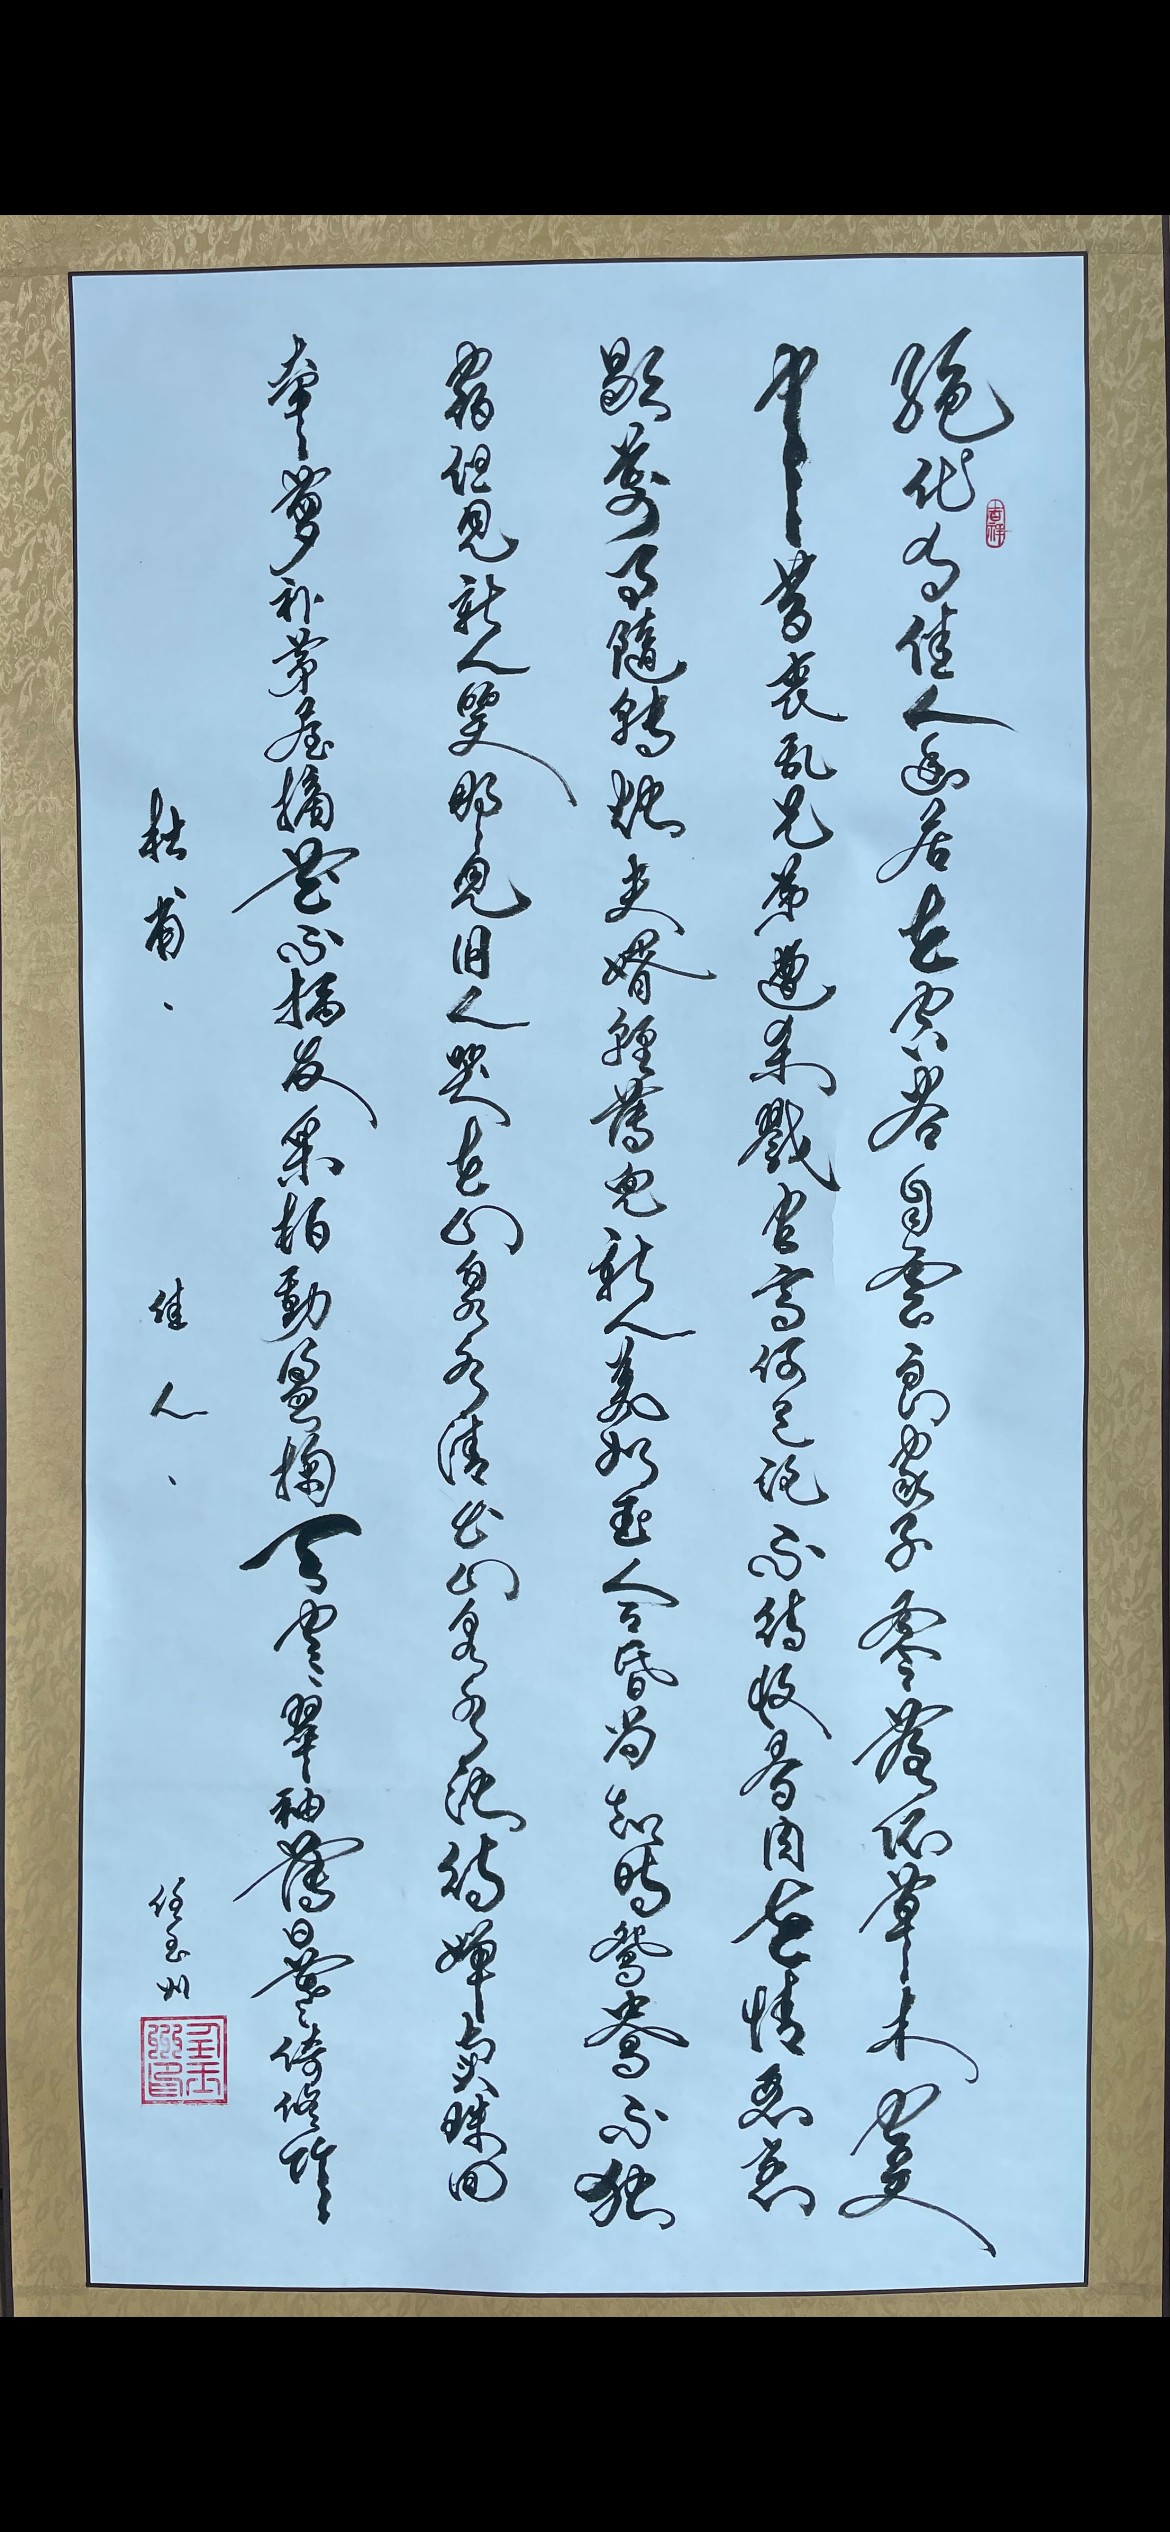 絶代有佳人幽居在空谷自雲良家子零落依草木関
中昔喪乱兄弟遭杀戮官高何足論不得收骨肉世情惡衰
歇萬事隨轉燭夫婿輕薄兒新人美如玉合昏尚知時鴛鴦不獨
宿但見新人笑那見旧人哭在山泉水清出山泉水浊侍婢賣珠回
牽蘿补茅屋摘花不插发采柏動盈掬天寒翠袖薄日暮倚修竹
杜甫、佳人、任玉州
吉祥